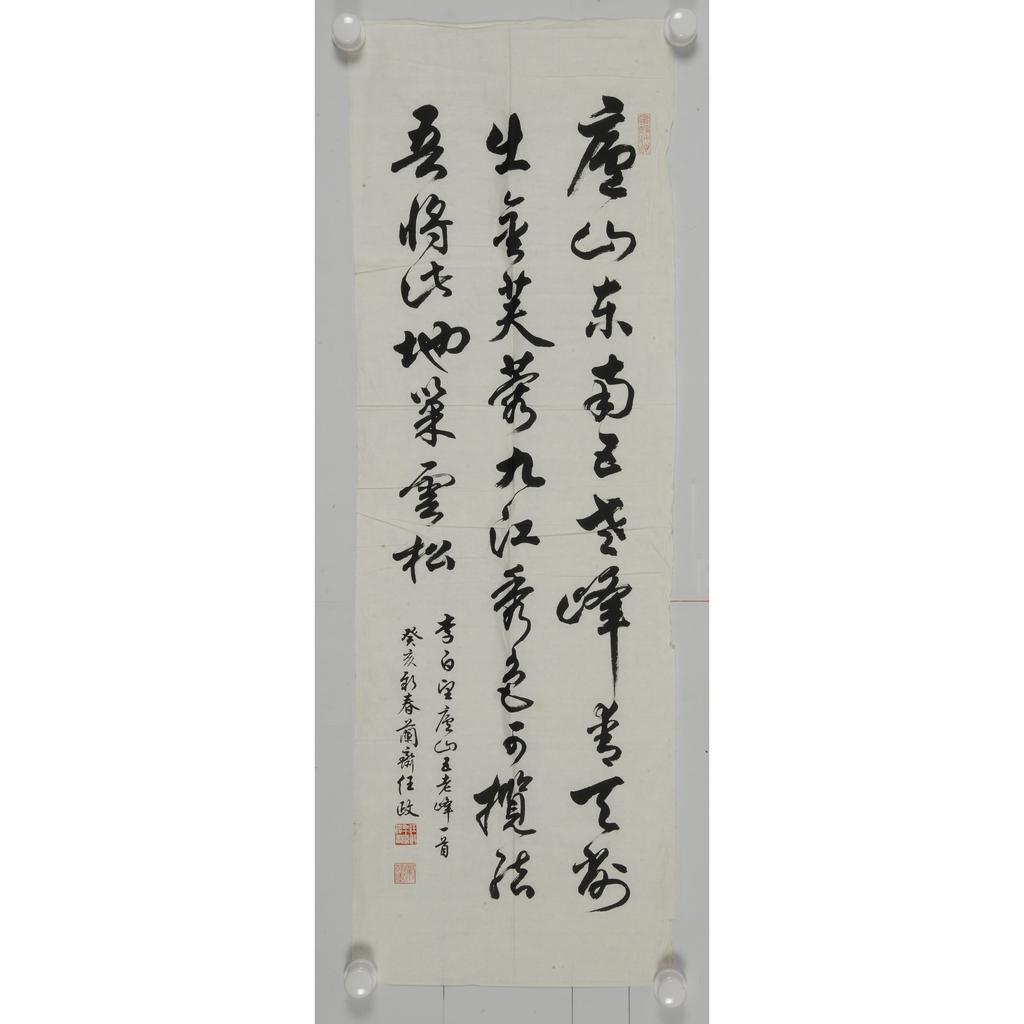 廬山东南五老峰青天削
出金芙蓉九江秀色可攬結
吾將此地巢雲松
李白望廬山五老峰一首
癸亥新春蘭齋任政